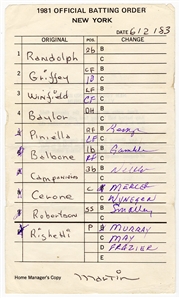 1981 OFFICIAL BATTING ORDER
NEW YORK
DATE 6/2/83
ORIGINAL POS. CHANGE
1 Randolph 2b B
C
2 Griffey CF B
1b C
3 Winfield LF B
CF C
4 Baylor DH B
C
5 Piniella RF B Kemp
C
6 Balboni 1b B Gamble
RF C
7 Campaneris 3b B Nettles
C
8 Cerone C B
C WYNEGAR
9 Robertson SS B Smalley
C
P Righetti P B MURRAY
C MAY
D FRAZIER
E
Home Manager's Copy
Martin